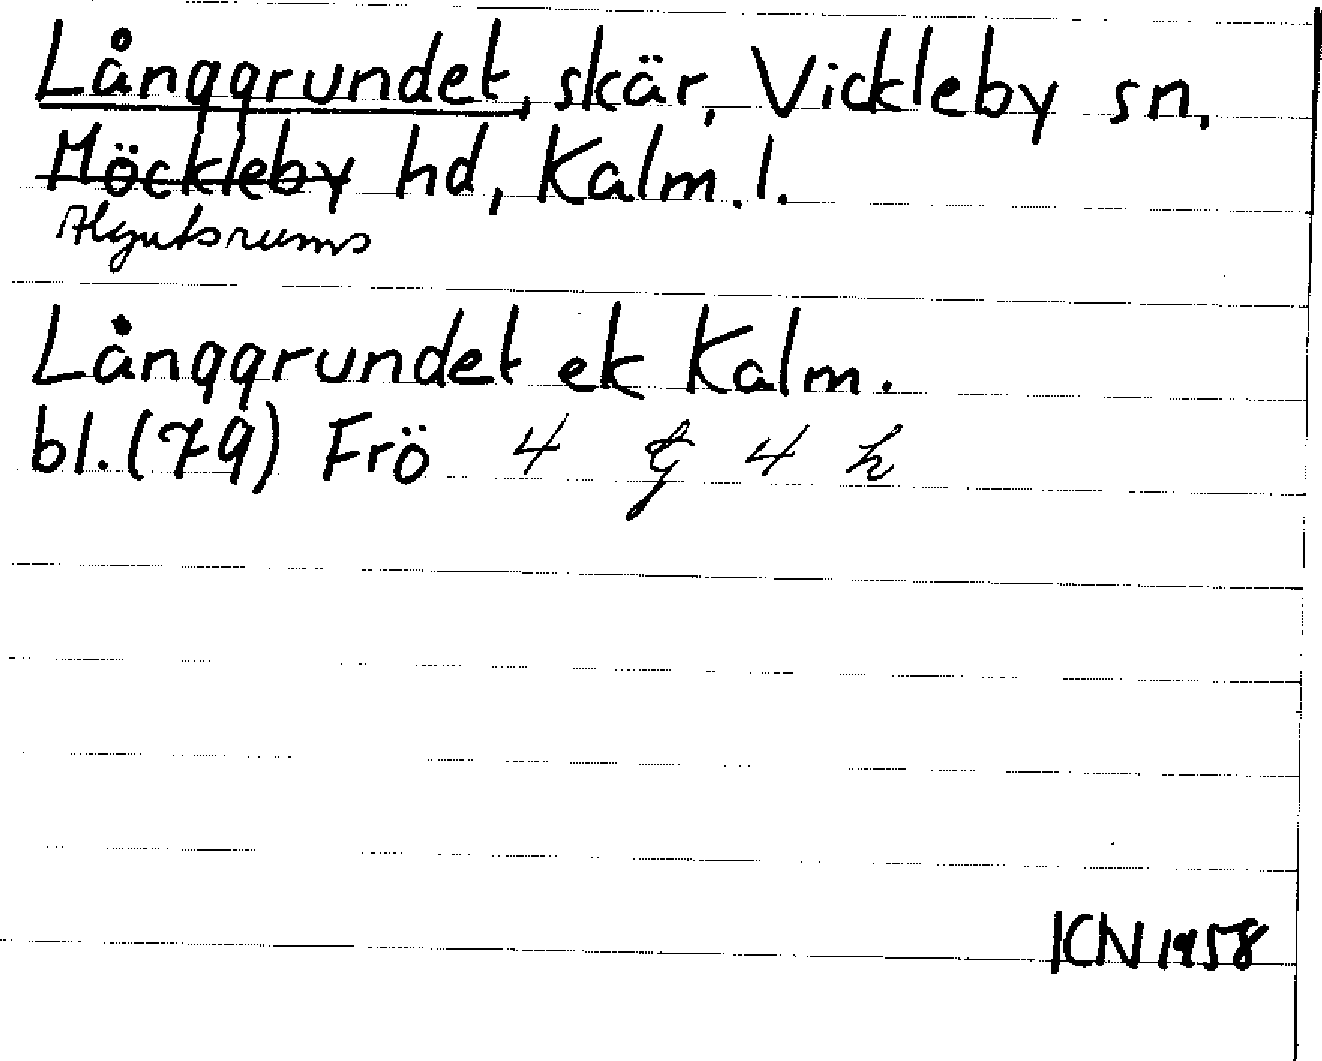 Långgrundet, skär, Vickleby sn,
Möckleby hd, Kalm. l.
Algutsrums
Långgrundet ek Kalm.
bl. (79) Frö 4 g 4 h
ICN 1958